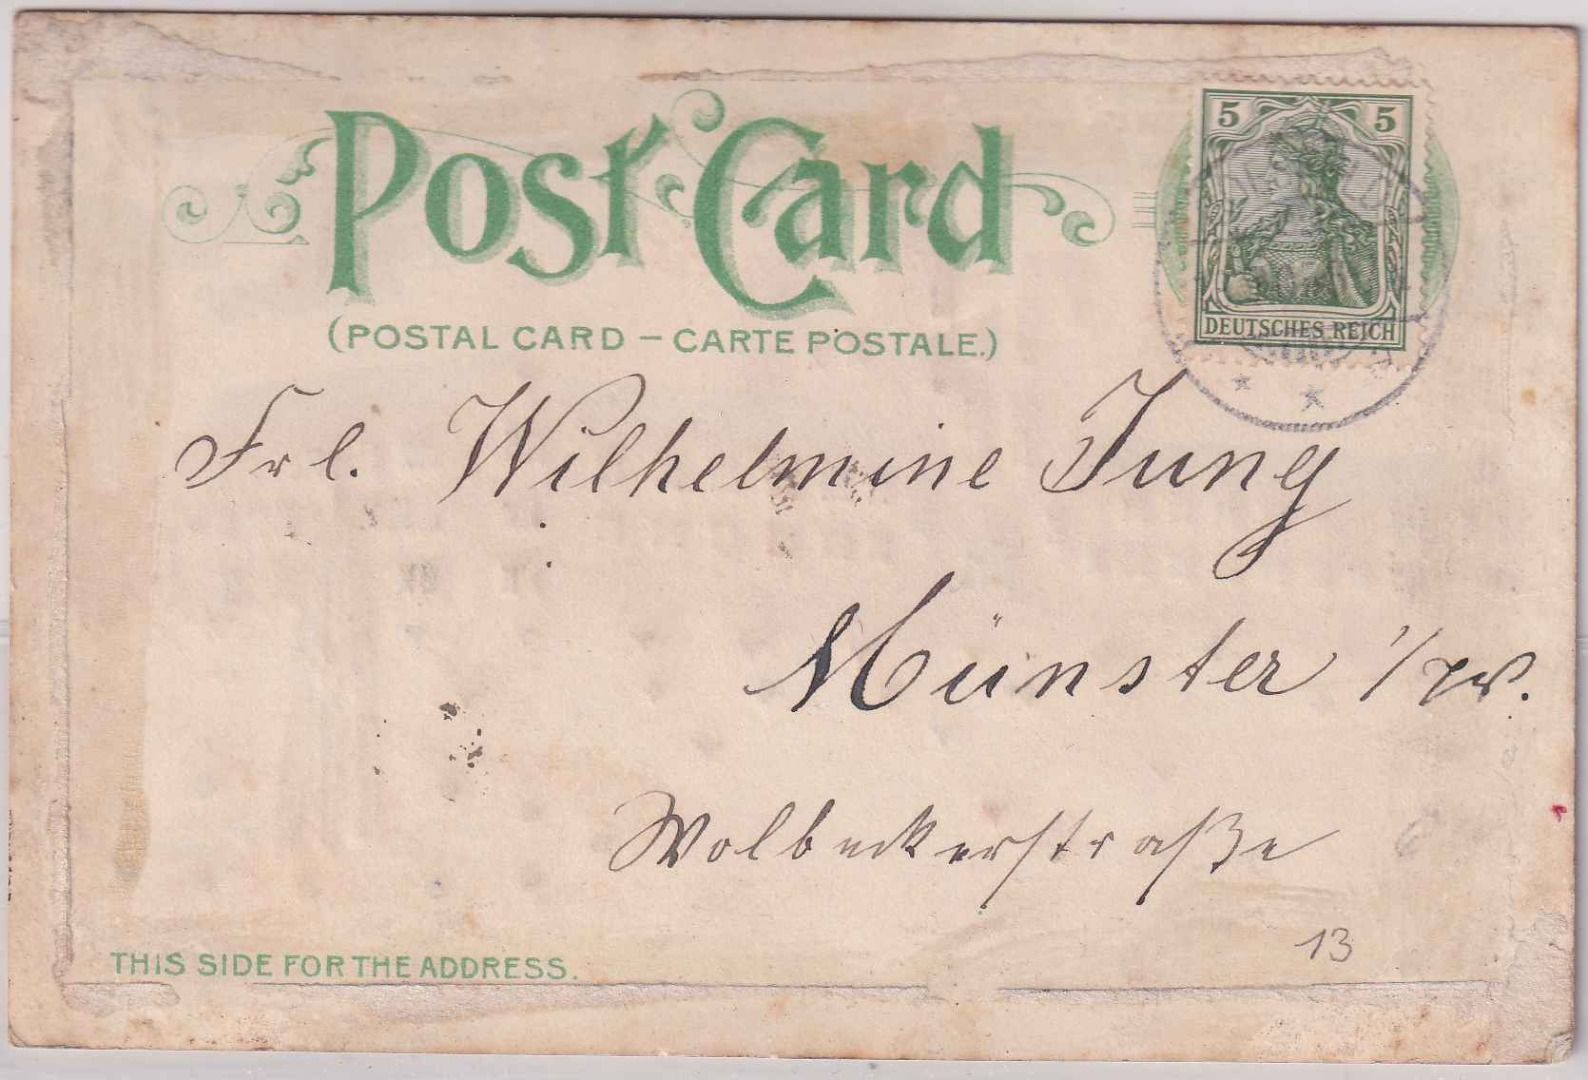 Post Card
(POSTAL CARD – CARTE POSTALE.)
5 5
DEUTSCHES REICH
Frl. Wilhelmine Jung
Münster i/W.
Wolbeckerstraße
13
THIS SIDE FOR THE ADDRESS.